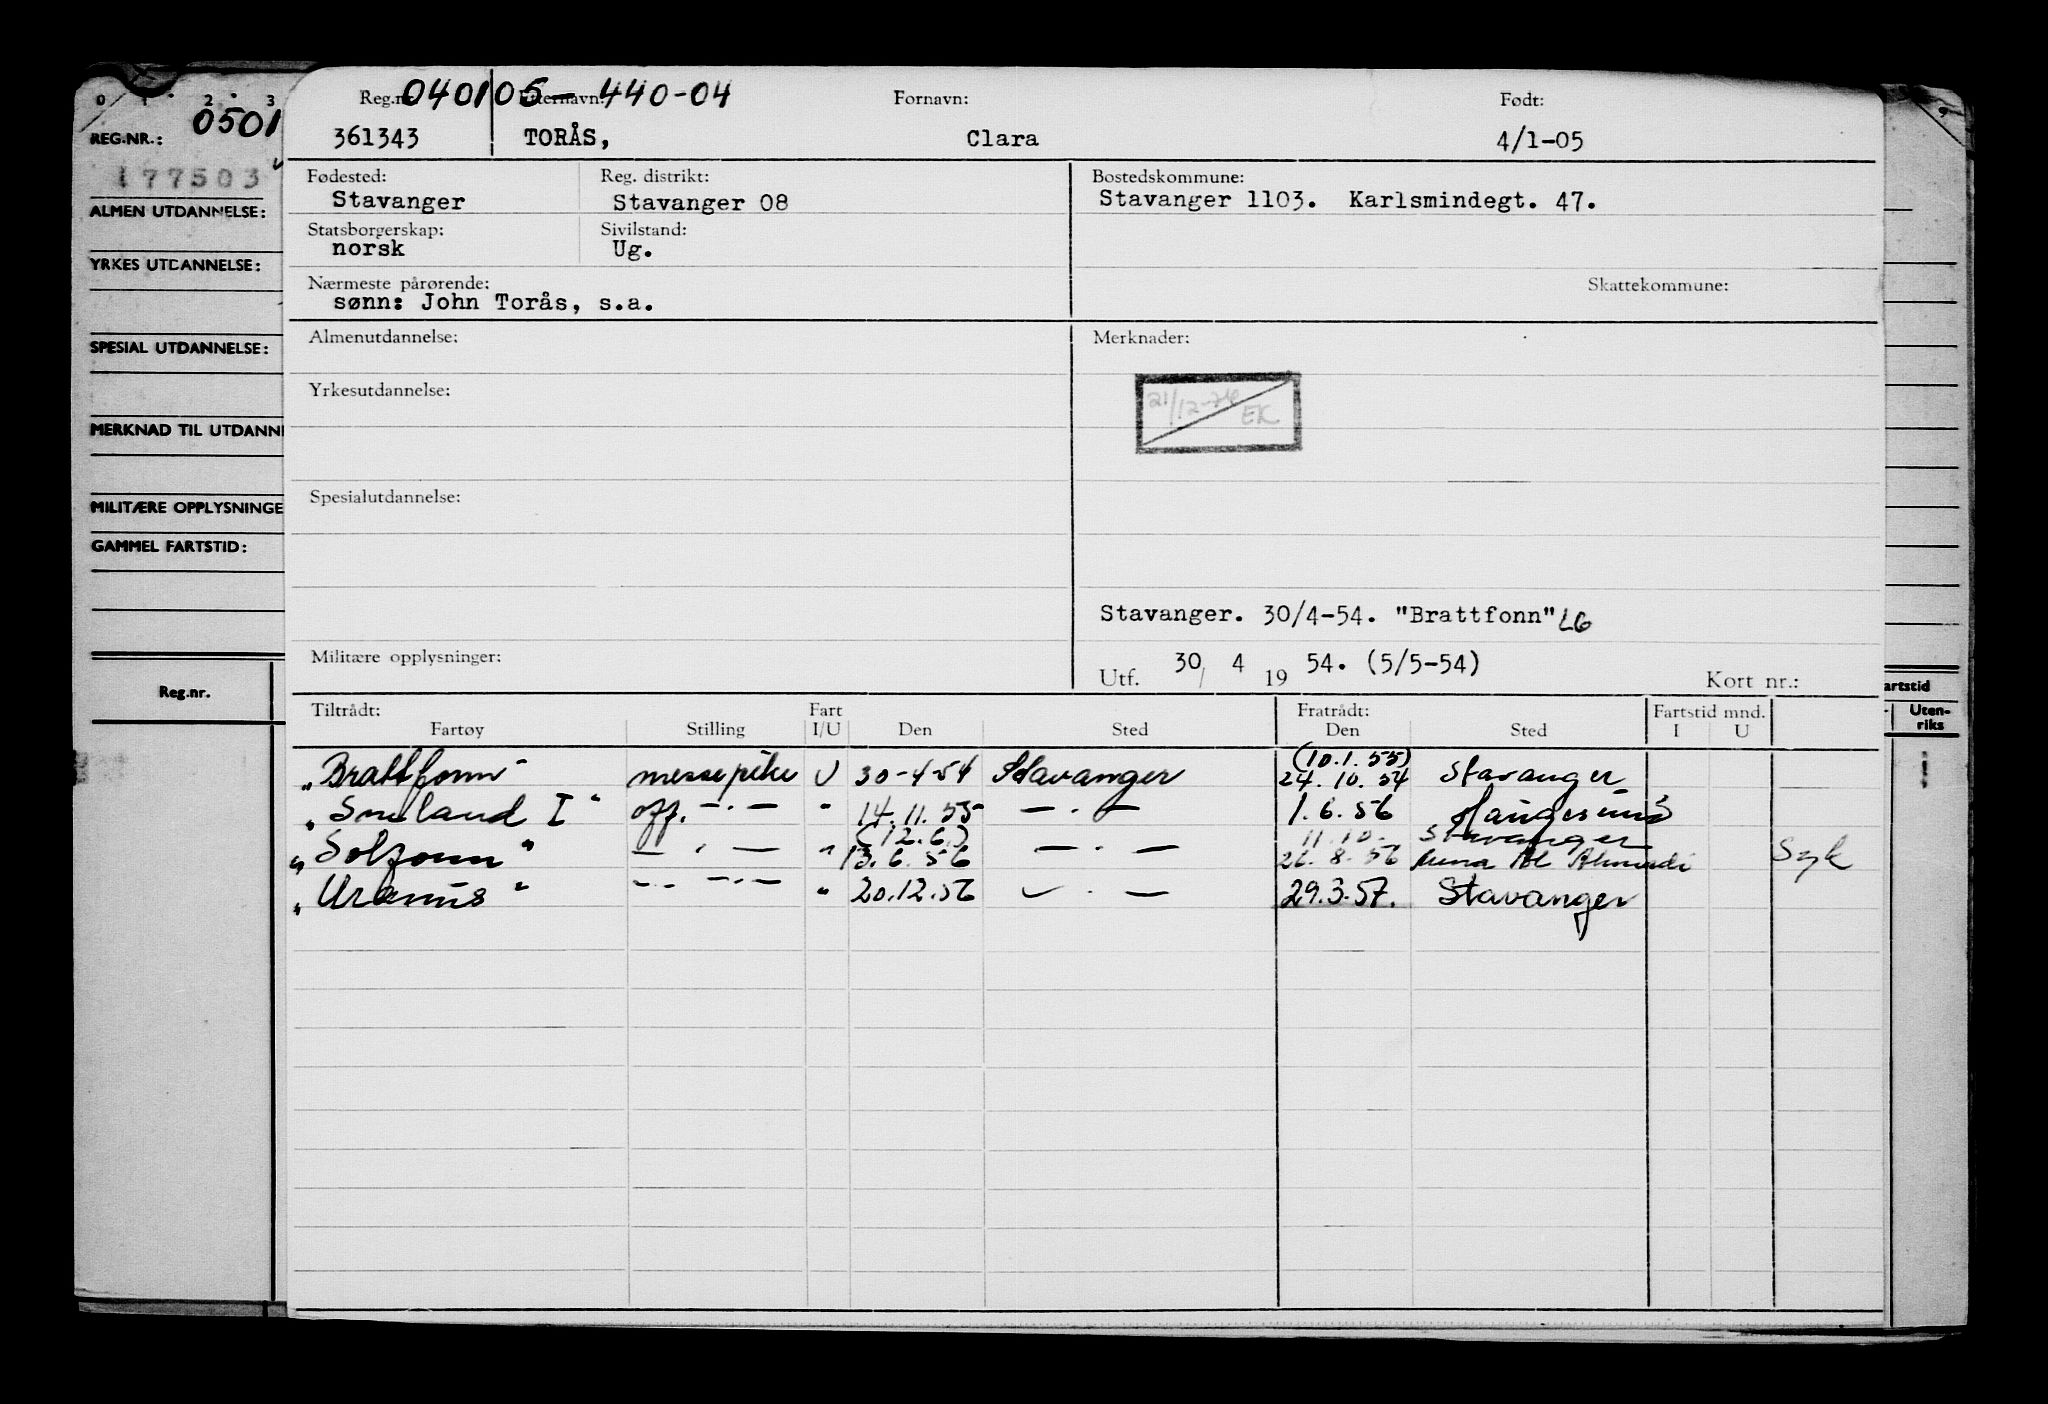 0 1 2 3
0501
REG.NR.:
177503
ALMEN UTDANNELSE:
YRKES UTDANNELSE:
SPESIAL UTDANNELSE:
MERKNAD TIL UTDANN
MILITÆRE OPPLYSNINGE
GAMMEL FARTSTID:
Reg.nr.
040105-440-04
Reg.nr. Etternavn: Fornavn: Født:
361343 TORÅS, Clara 4/1-05
Fødested: Reg. distrikt: Bostedskommune:
Stavanger Stavanger 08 Stavanger 1103. Karlsmindegt. 47.
Statsborgerskap: Sivilstand:
norsk Ug.
Nærmeste pårørende: Skattekommune:
sønn: John Torås, s.a.
Almenutdannelse: Merknader:
21/12-74 EK
Yrkesutdannelse:
Spesialutdannelse:
Stavanger. 30/4-54. "Brattfonn" LG
Militære opplysninger:
Utf. 30/ 4 19 54. (5/5-54) Kort nr.:
Tiltrådt: Fart Fratrådt: Fartstid mnd.
Fartøy Stilling I/U Den Sted Den Sted I U
(10.1.55)
"Brattfonn" messepike U 30-4-54 Stavanger 24.10.54 Stavanger
"Småland I" off. -"- " 14.11.55 -"- 1.6.56 Haugesund
(12.6.) 11.10. Stavanger
"Solfonn" -"- " 13.6.56 -"- 26.8.56 Mena Al Ahmadi Syk
"Uranus" -"- -"- " 20.12.56 -"- 29.3.57. Stavanger
artstid
Uten-
riks